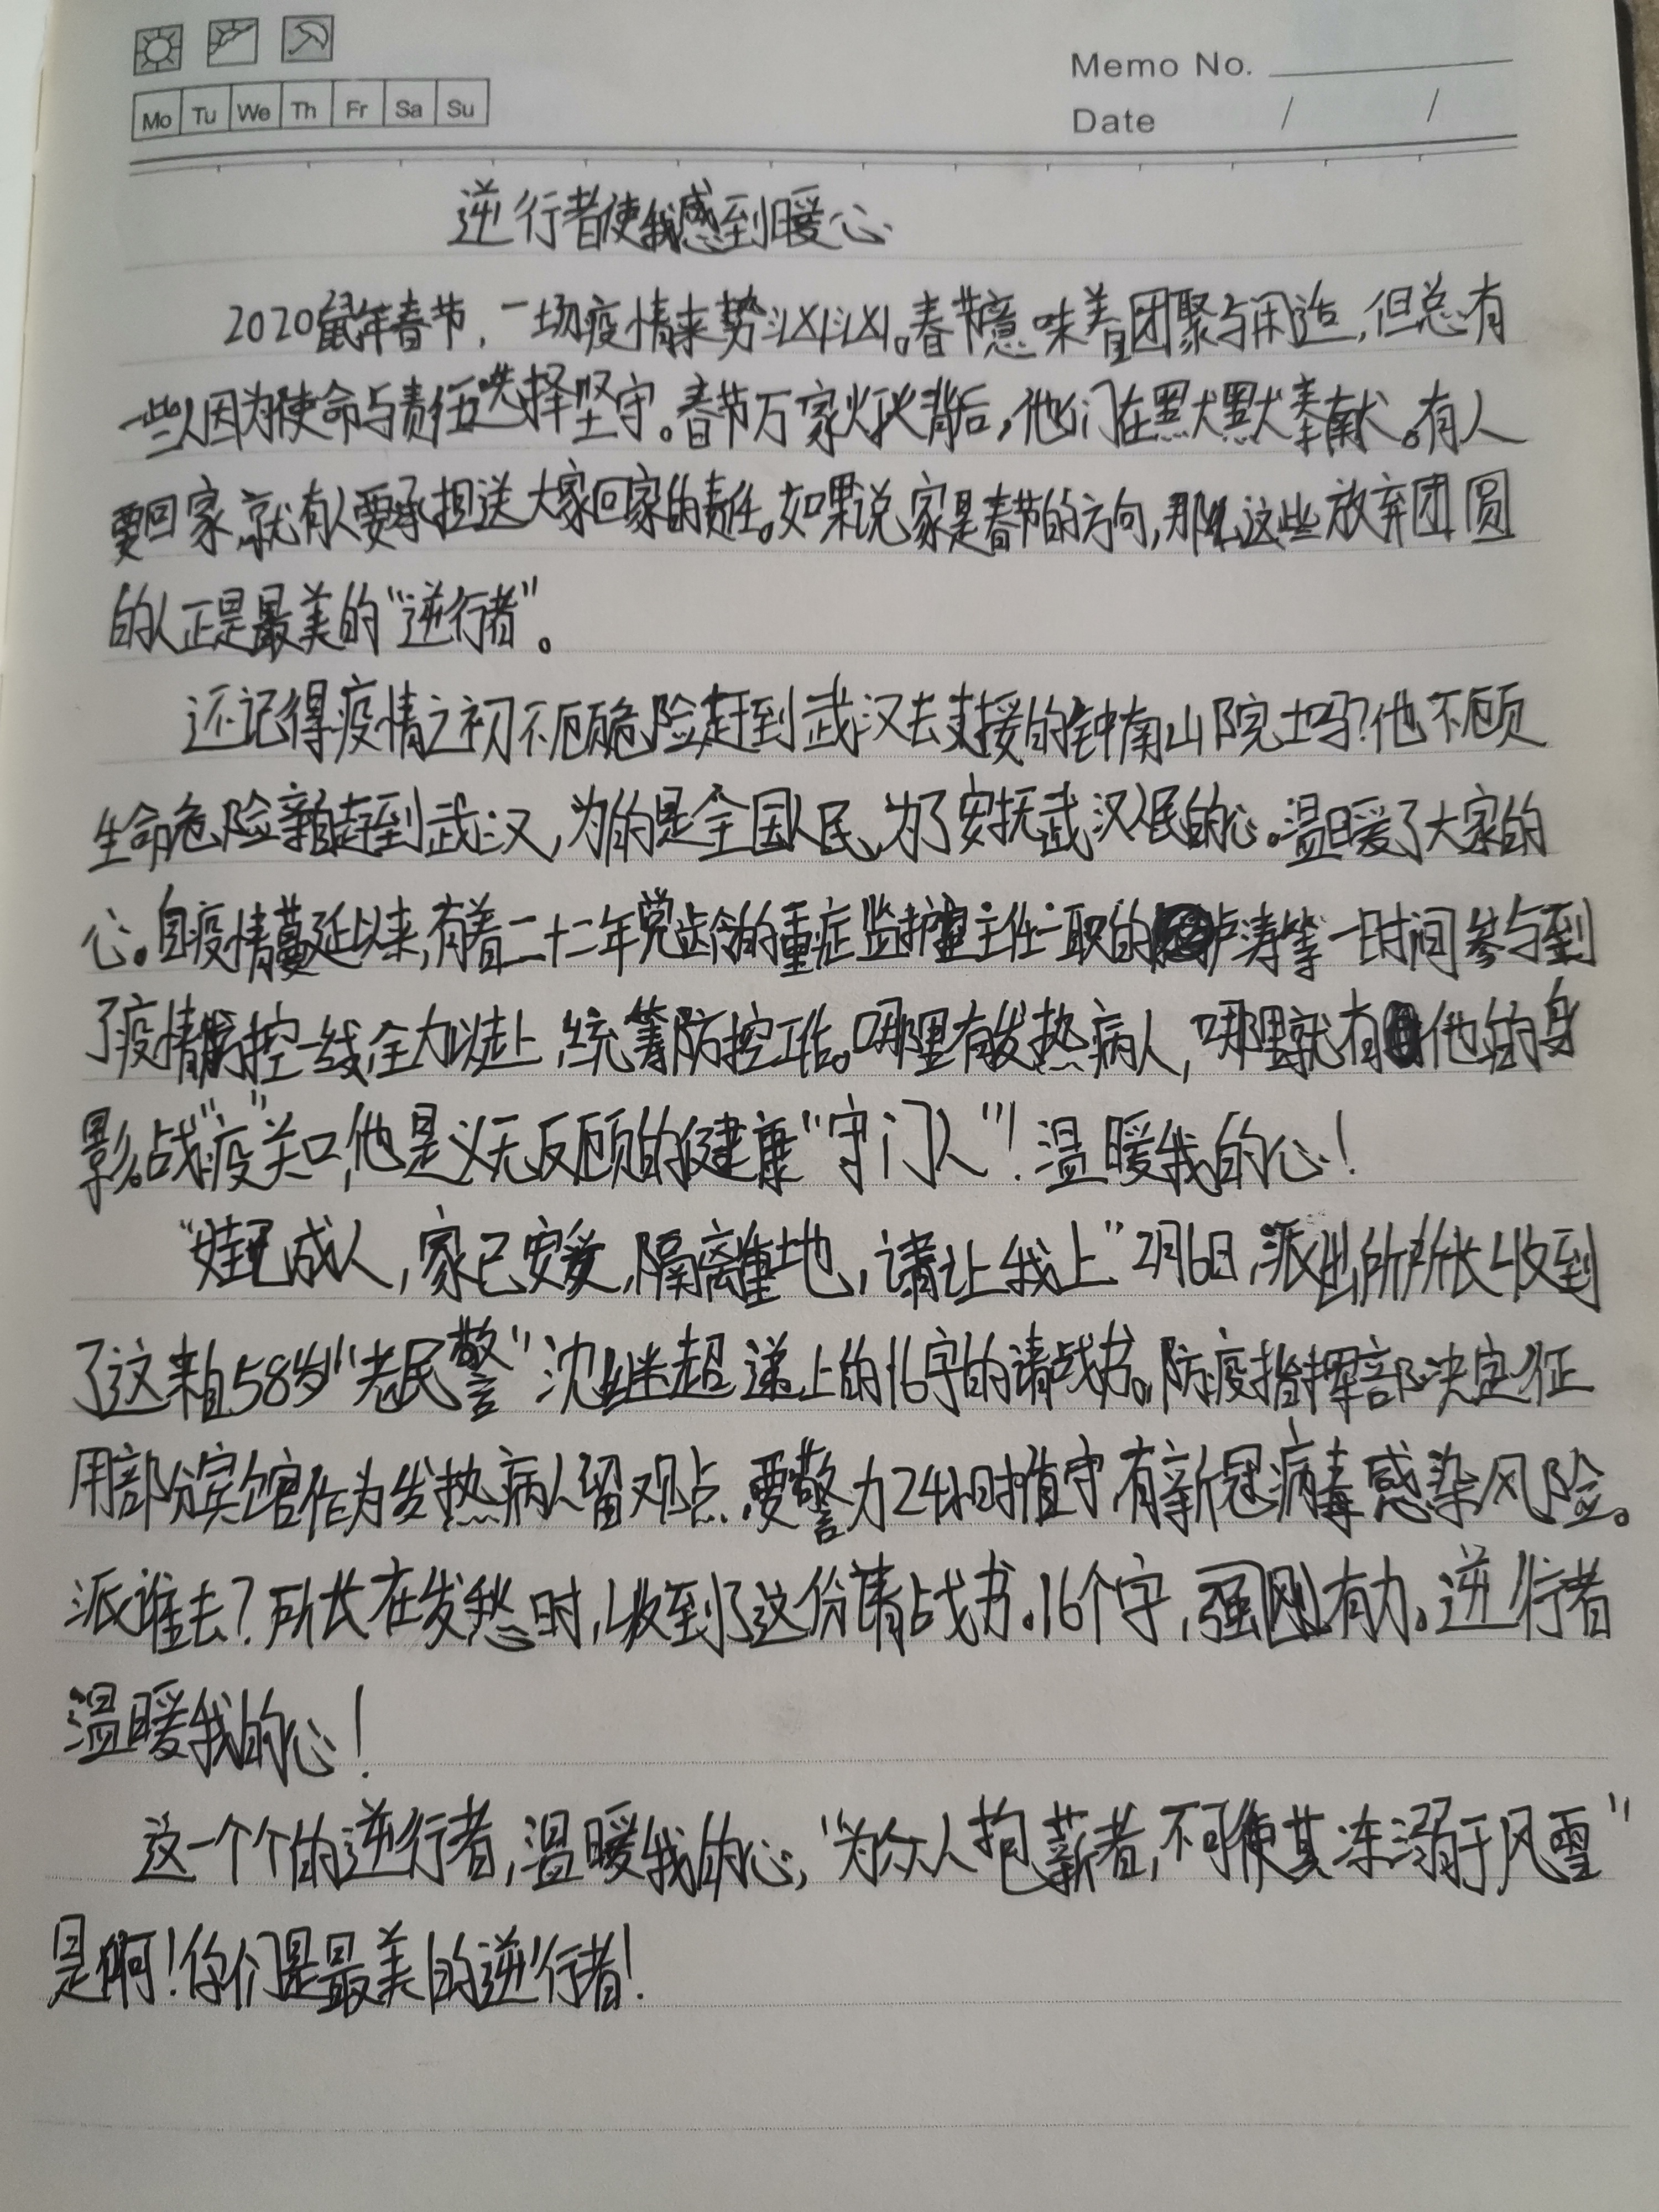 Memo No.
Mo Tu We Th Fr Sa Su
Date / /
逆行者使我感到暖心
2020鼠年春节,一场疫情来势汹汹。春节意味着团聚与闲适,但总有
一些人因为使命与责任选择坚守。春节万家灯火背后,他们在默默奉献。有人
要回家,就有人要承担送大家回家的责任。如果说家是春节的方向,那么这些放弃团圆
的人正是最美的“逆行者”。
还记得疫情之初不顾危险赶到武汉去支援的钟南山院士吗?他不顾
生命危险亲自赶到武汉,为的是全国人民,为了安抚武汉人民的心。温暖了大家的
心。自疫情蔓延以来,有着二十二年党龄的重症监护室主任一职的卢涛等一时间参与到
了疫情防控一线,全力以赴,统筹防控工作。哪里有发热病人,哪里就有他的身
影。战“疫”关口,他是义无反顾的健康“守门人”!温暖我的心!
“娃已成人,家已安爱,隔离重地,请让我上”2月6日,派出所所长收到
了这来自58岁“老民警”沈继超递上的16字的请战书。防疫指挥部决定征
用部分宾馆作为发热病人留观点,要警力24小时值守,有新冠病毒感染风险。
派谁去?所长在发愁时,收到了这份请战书。16个字,强刚有力。逆行者
温暖我的心!
这一个个的逆行者,温暖我的心,“为众人抱薪者,不可使其冻溺于风雪”
是啊!你们是最美的逆行者!